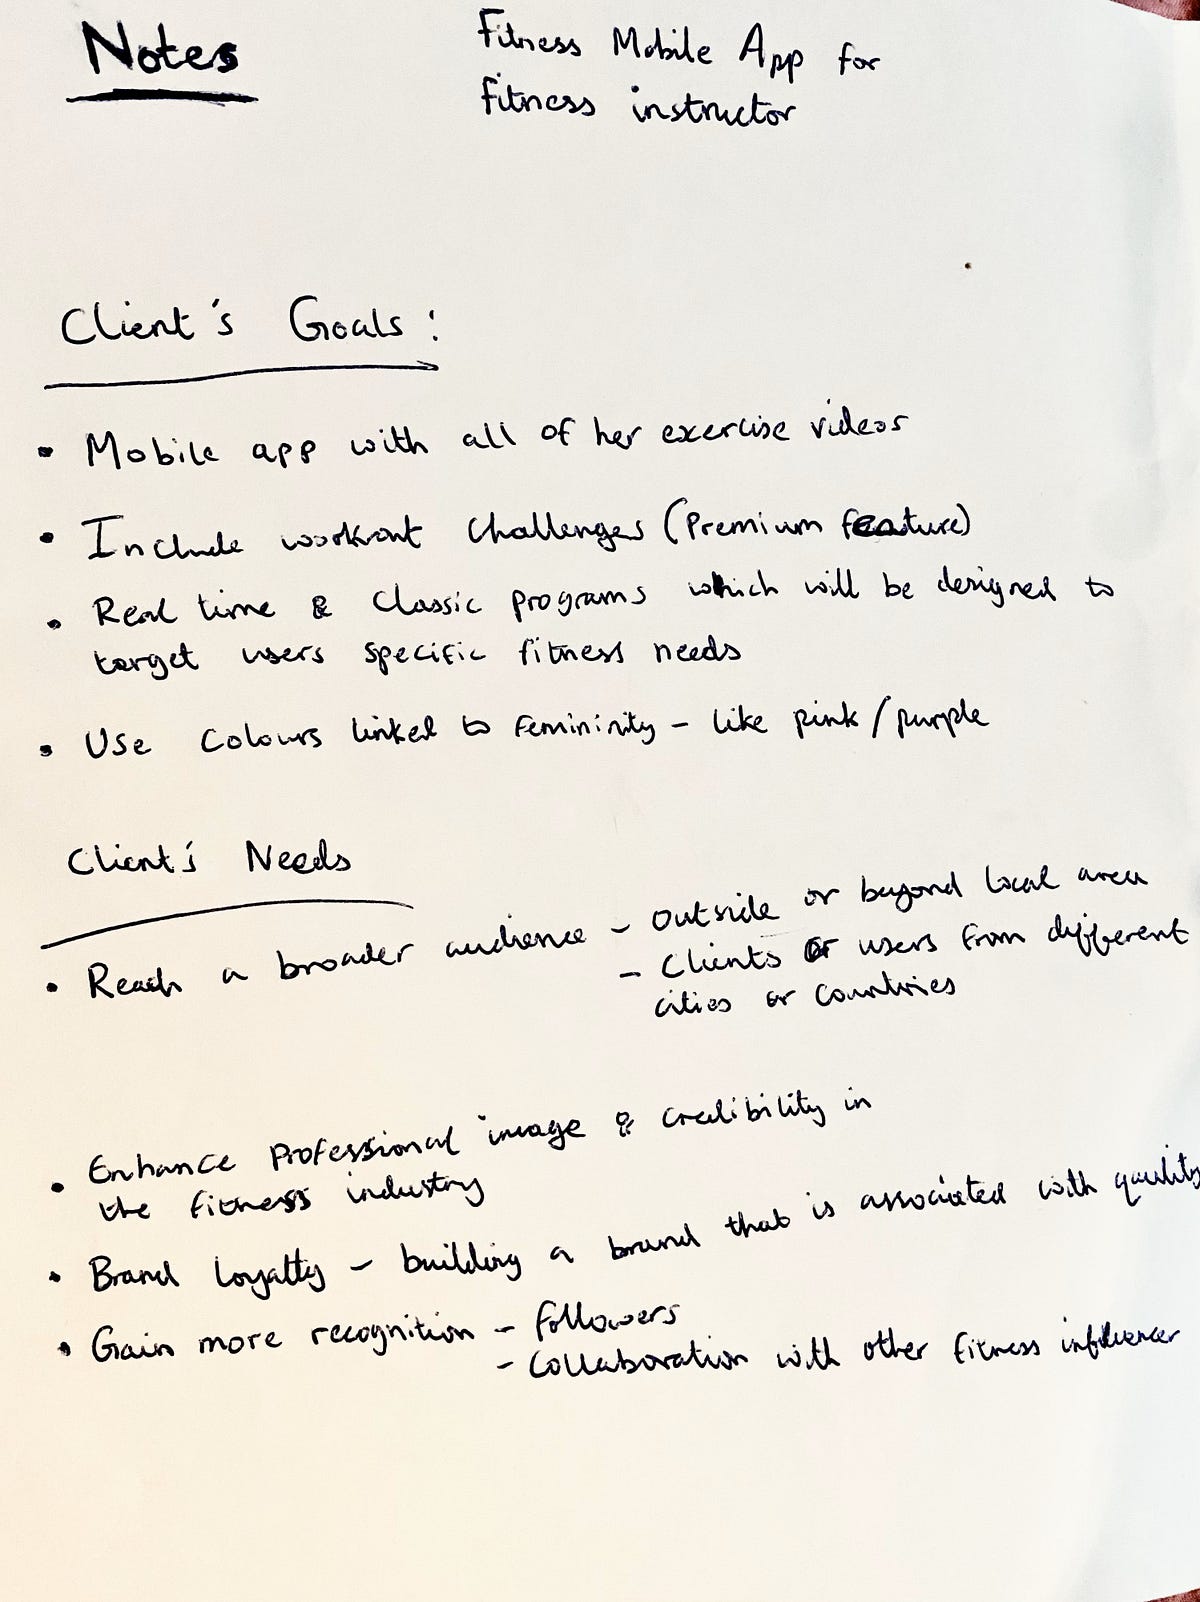 Notes
Fitness Mobile App for
fitness instructor
Client's Goals:
• Mobile app with all of her exercise videos
• Include workout challenges (Premium feature)
• Real time & Classic programs which will be designed to
target users specific fitness needs
• Use colours linked to femininity - like pink/purple
Client's Needs
• Reach a broader audience - outside or beyond local area
- Clients or users from different
cities or countries
• Enhance professional image & credibility in
the fitness industry
• Brand loyalty - building a brand that is associated with quality
• Gain more recognition - followers
- Collaboration with other fitness influencer